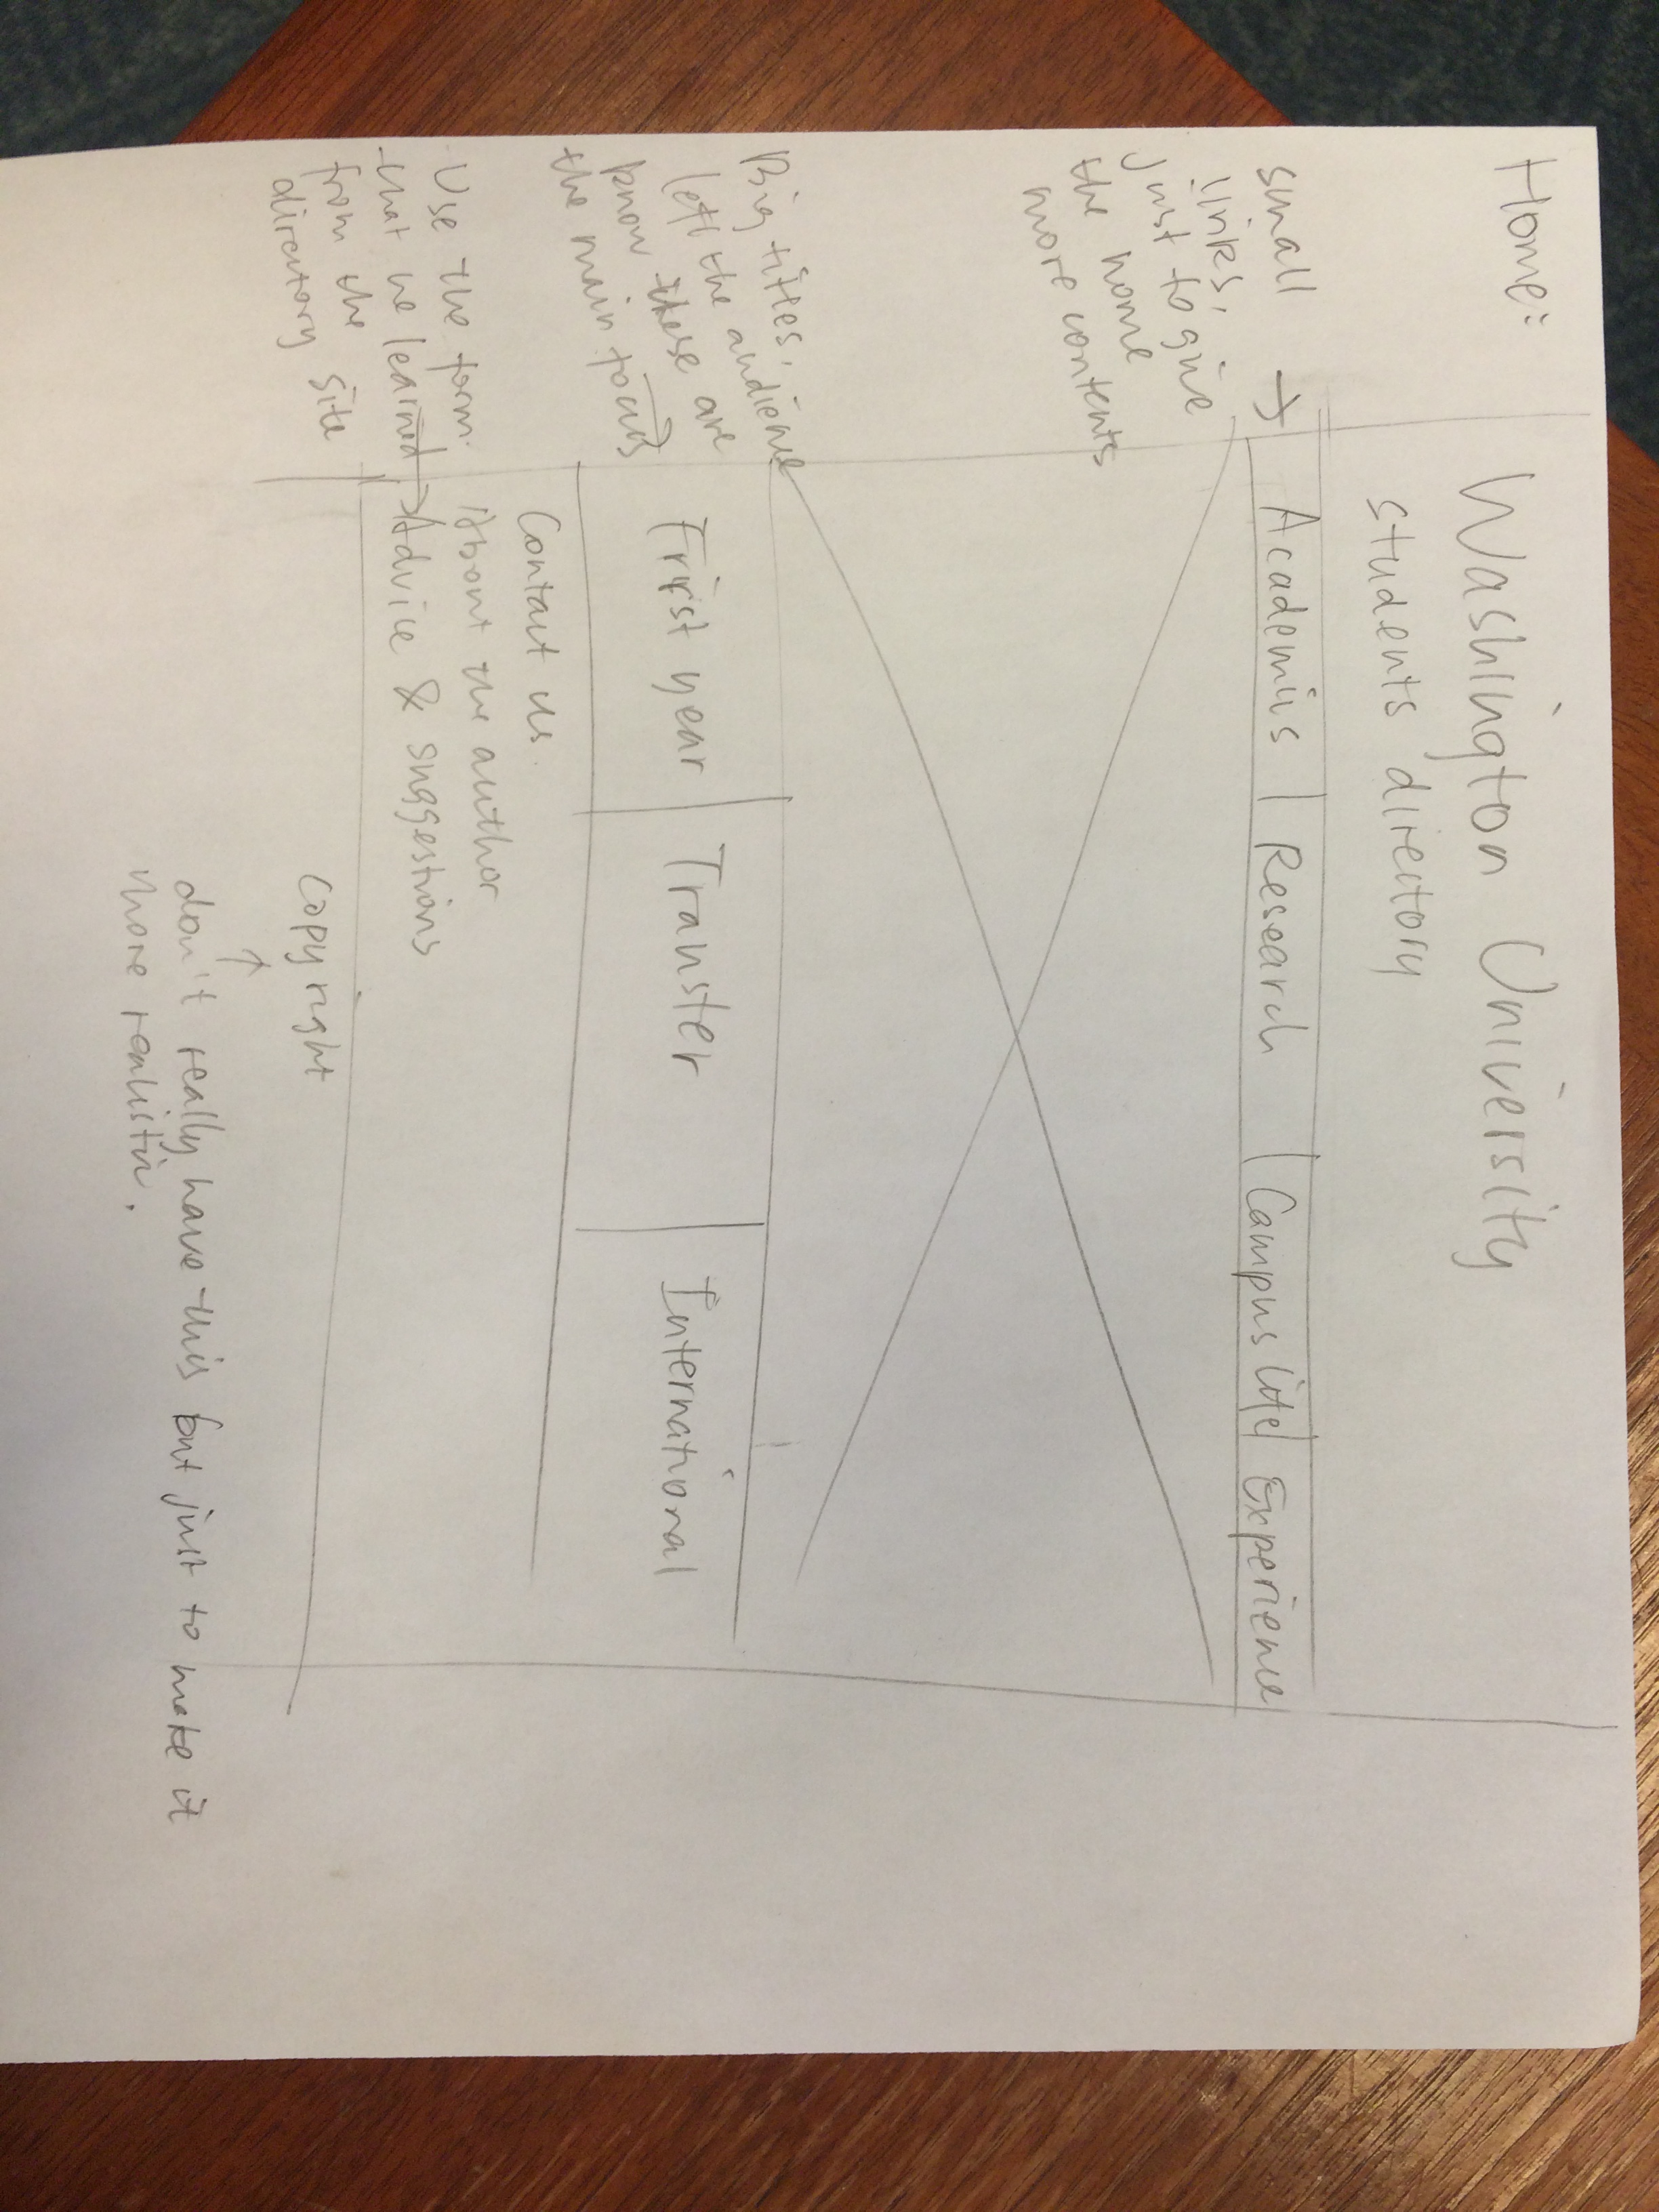 Home:
Washington University
students directory
small →
links,
just to give
the home
more contents
Academics | Research | Campus life | Experience
Big titles,
let the audience
know these are
the main focus
First year | Transfer | International
Contact us
About the author
Advice & suggestions
Use the form
that he learned →
from the
directory site
Copy right
↑
don't really have this but just to make it
more realistic.